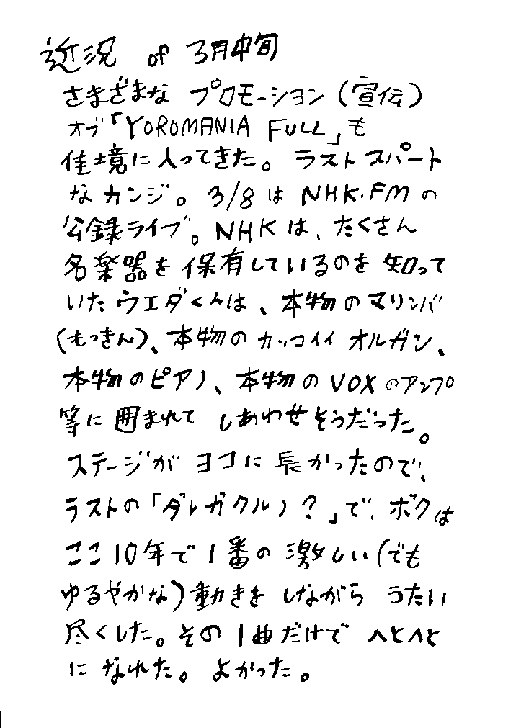 近況 of 3月中旬
さまざまな プロモーション(宣伝)
オブ「YOROMANIA FULL」も
佳境に入ってきた。ラストスパート
なカンジ。3/8は NHK・FMの
公録ライブ。NHKは、たくさん
名楽器を保有しているのを知って
いたウエダくんは、本物のマリンバ
(もっきん)、本物のカッコイイ オルガン、
本物のピアノ、本物のVOXのアンプ
等に囲まれて しあわせそうだった。
ステージが ヨコに長かったので、
ラストの「ダレガクルノ?」で、ボクは
ここ10年で1番の激しい(でも
ゆるやかな)動きをしながら うたい
尽くした。その1曲だけで へとへと
になれた。よかった。